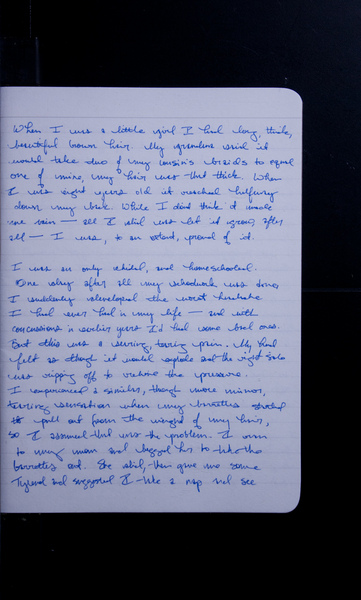 When I was a little girl I had long, thick,
beautiful brown hair. My grandma said it
would take two of my cousin's braids to equal
one of mine, my hair was that thick. When
I was eight years old it reached halfway
down my back. While I don't think it made
me vain — all I did was let it grow, after
all — I was, to an extent, proud of it.

I was an only child, and homeschooled.
One day after all my schoolwork was done,
I suddenly developed the worst headache
I had ever had in my life — and with
concussions in earlier years I'd had some bad ones.
But this was a searing, tearing pain. My head
felt as though it would explode and the right side
was ripping off to relieve the pressure.
I experienced a similar, though more minor,
tearing sensation when my barrettes started
to pull out from the weight of my hair,
so I assumed that was the problem. I ran
to my mom and begged her to take the
barrettes out. She did, then gave me some
Tylenol and suggested I take a nap and see